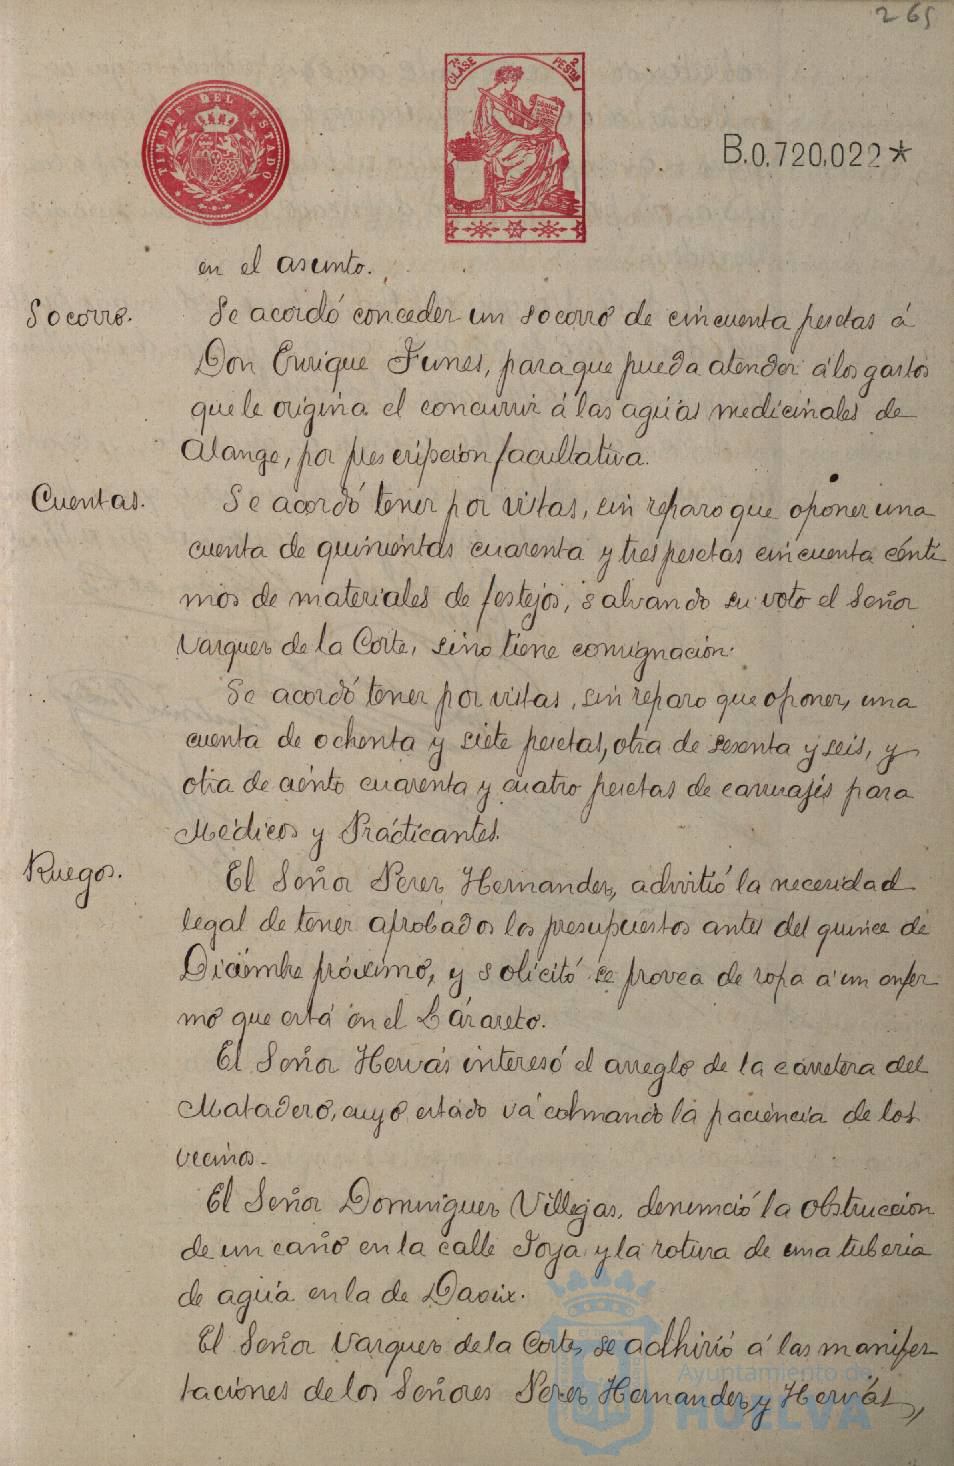 265
TIMBRE DEL ESTADO
7ª CLASE
2 PESTAS
B.0,720,022*
en el asunto.
Socorro.
Se acordó conceder un socorro de cincuenta pesetas á
Don Enrique Funes, para que pueda atender á los gastos
que le origina el concurrir á las aguas medicinales de
Alange, por prescripcion facultativa.
Cuentas.
Se acordó tener por vistas, sin reparo que oponer una
cuenta de quinientas cuarenta y tres pesetas cincuenta cénti
mos de materiales de festejos, salvando su voto el Señor
Vazquez de la Corte, sino tiene consignación.
Se acordó tener por vistas, sin reparo que oponer, una
cuenta de ochenta y siete pesetas, otra de sesenta y seis, y
otra de ciento cuarenta y cuatro pesetas de carruajes para
Médicos y Prácticantes.
Ruegos.
El Señor Perez Hernandez, advirtió la necesidad
legal de tener aprobados los presupuestos antes del quince de
Diciembre próximo, y solicitó se provea de ropa á un enfer
mo que está en el Lázareto.
El Señor Hervás interesó el arreglo de la carretera del
Matadero, cuyo estado vá colmando la paciencia de los
vecinos.
El Señor Dominguez Villegas, denunció la obstruccion
de un caño en la calle Joya y la rotura de una tuberia
de agua en la de Daoix.
El Señor Vazquez de la Corte, se adhirió á las manifes
taciones de los Señores Perez Hernandez, y Hervás,
Ayuntamiento de
HUELVA